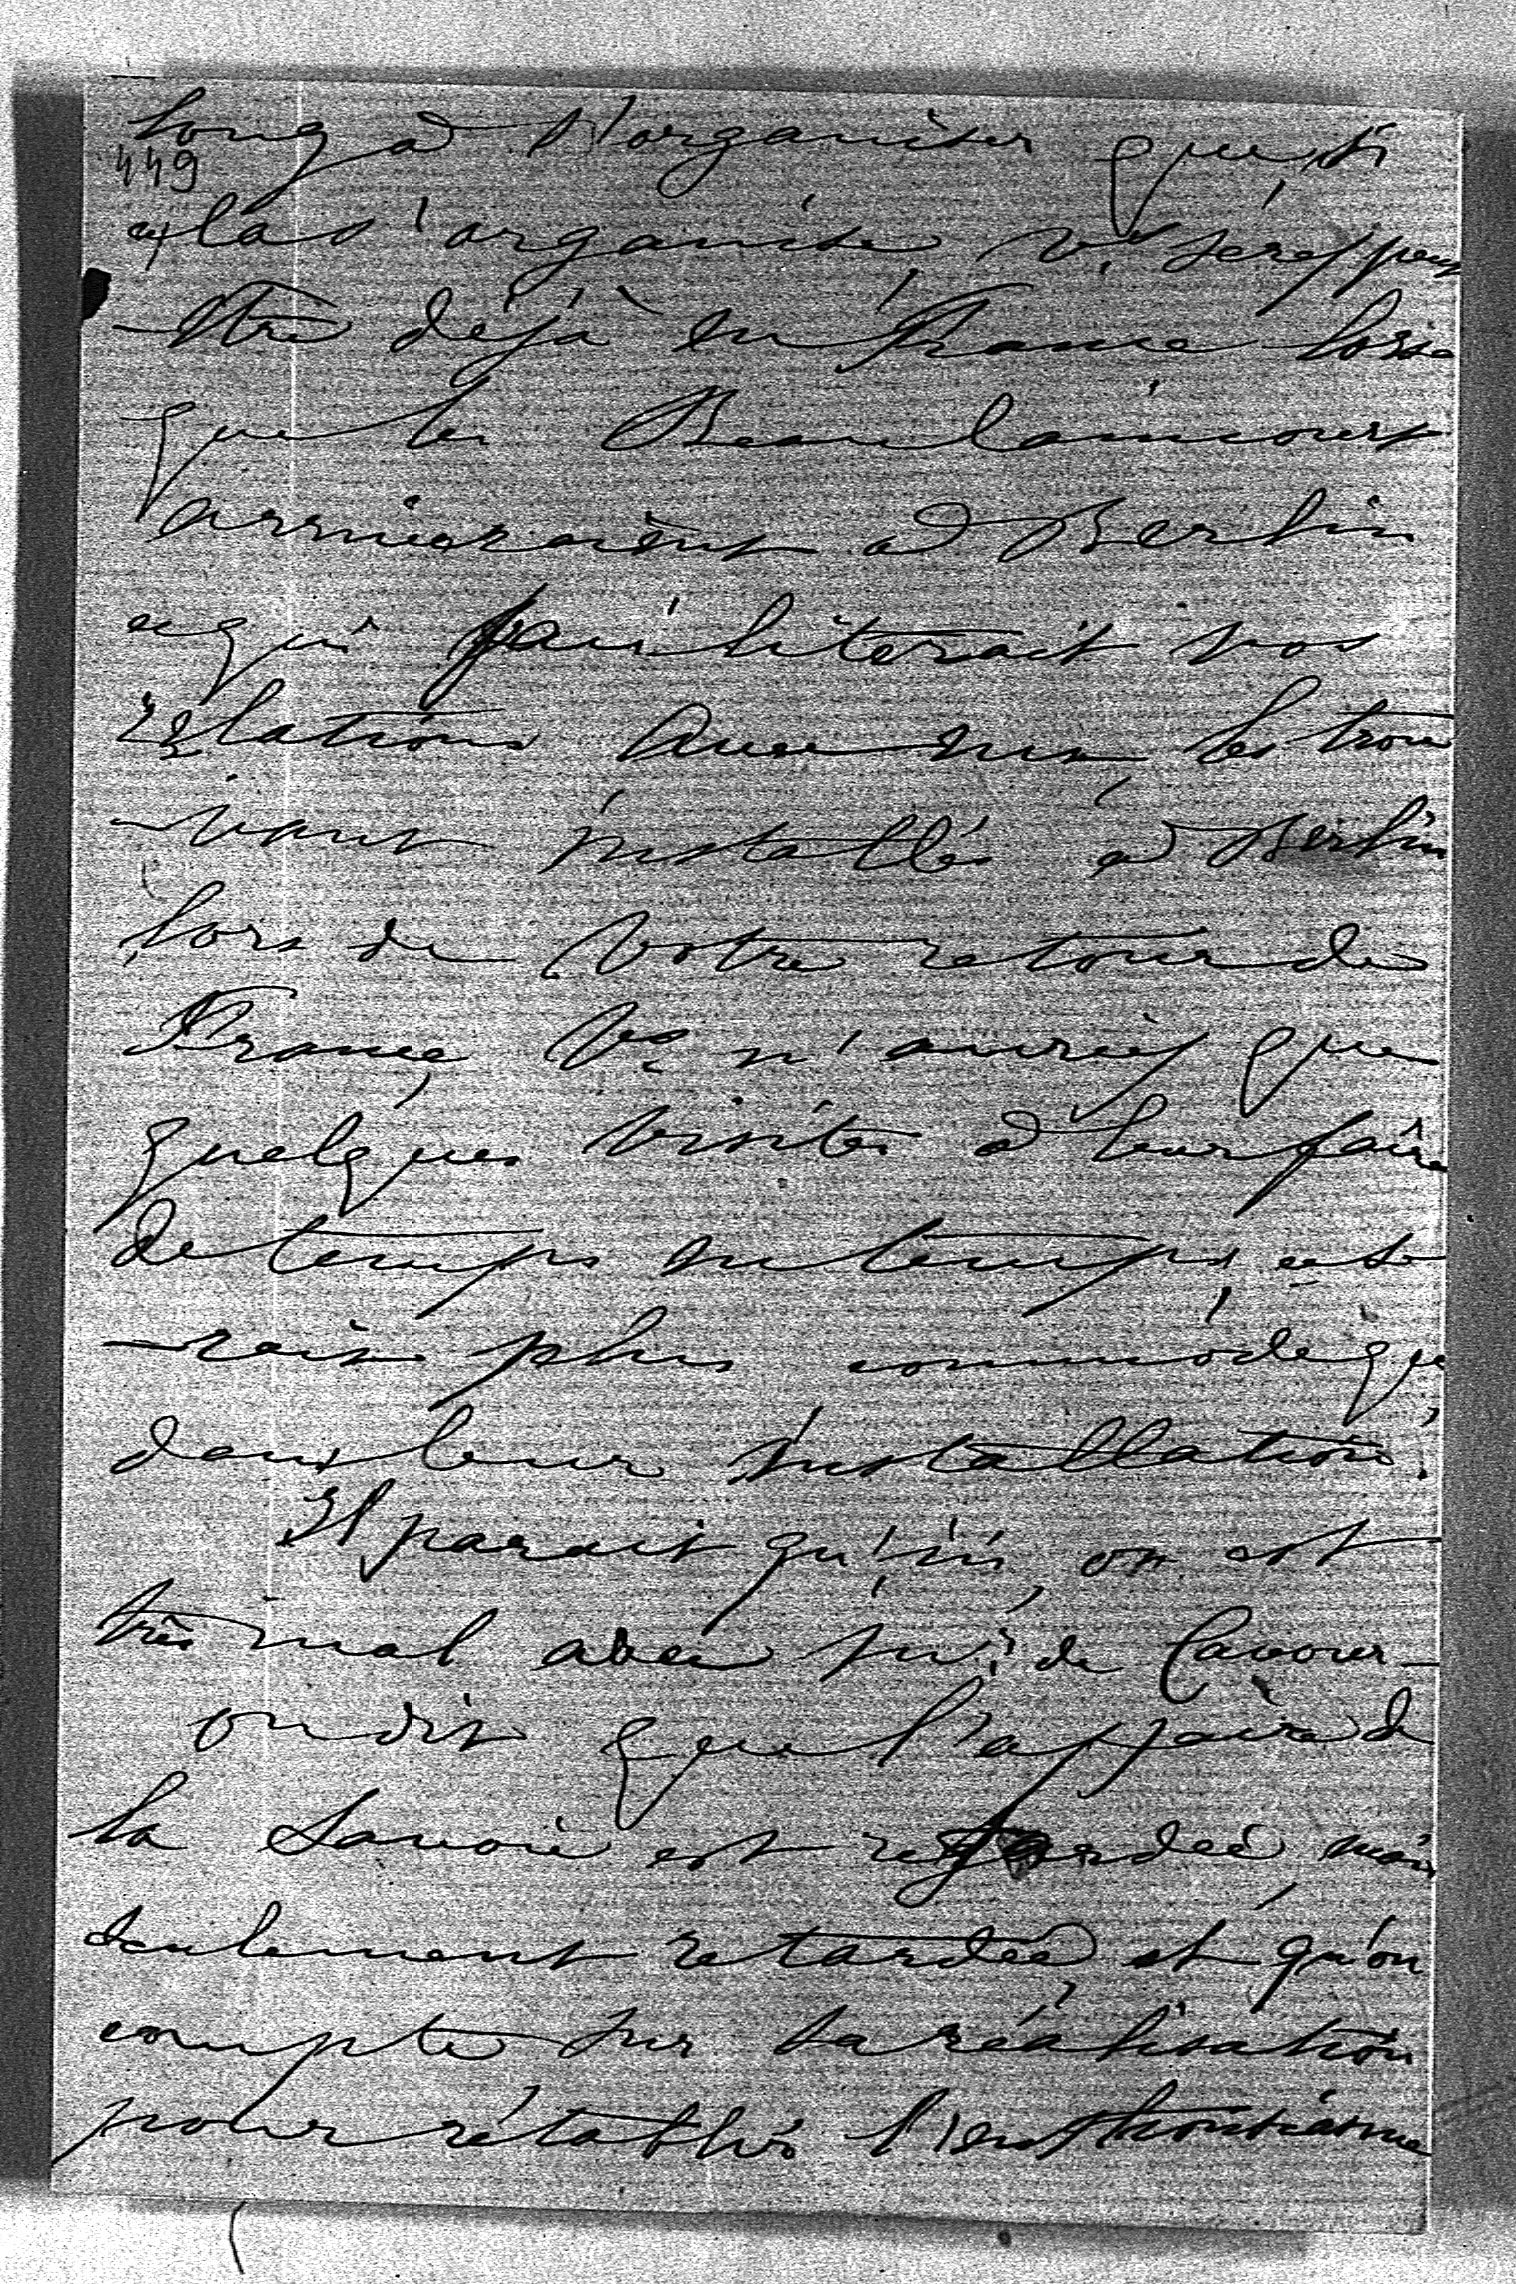 long à s'organiser que, si
449
cela s'organise, vs serez peut
-être déjà en France lors
que les Beaulaincourt
arriveraient à Berlin
ce qui faciliterait vos
relations avec eux, les trou
-vant installés à Berlin
lors de votre retour de
France, vs n'auriez que
quelques visites à leur faire
de temps en temps, ce se
-rait plus commode que,
dans leur installation.
Il parait qu'ici, on est
très mal avec Mr de Cavour -
on dit que l'affaire de
la Savoie est retardée, mais
seulement retardée, et qu'on
compte sur sa réalisation
pour rétablir l'enthousiasme